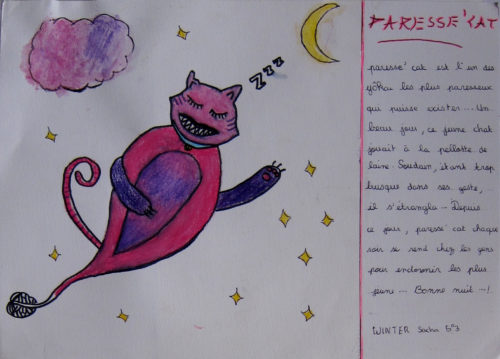 PARESSE'CAT
zzz
paresse' cat est l'un des
yôkai les plus paresseux
qui puisse exister... Un
beau jour, ce jeune chat
jouait à la pellotte de
laine. Soudain, étant trop
brusque dans ses geste,
il s'étrangla - Depuis
ce jour, paresse cat chaque
soir se rend chez les gens
pour endormir les plus
jeune --- Bonne nuit --!
WINTER Sacha 5°3